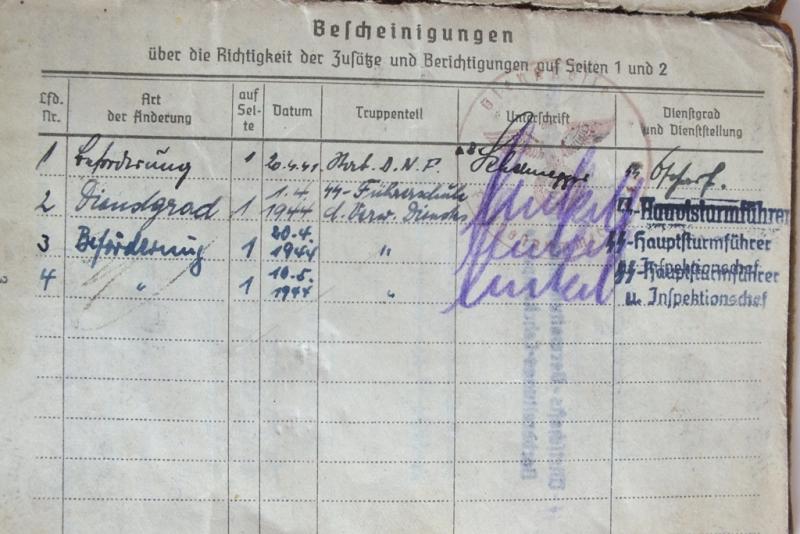 Bescheinigungen
über die Richtigkeit der Zusätze und Berichtigungen auf Seiten 1 und 2
Lfd. Nr. Art der Änderung auf Sei- te Datum Truppenteil Unterschrift Dienstgrad und Dienststellung
1 Beförderung 1 20.4.41 D.N.F. Oscharf.
2 Dienstgrad 1 1.4. 1944 SS-Führerschule d. Verw. Dienstes SS-Hauptsturmführer
3 Beförderung 1 20.4. 1944 " SS-Hauptsturmführer
u. Inspektionschef
4 " 1 10.5. 1944 " SS-Hauptsturmführer
u. Inspektionschef